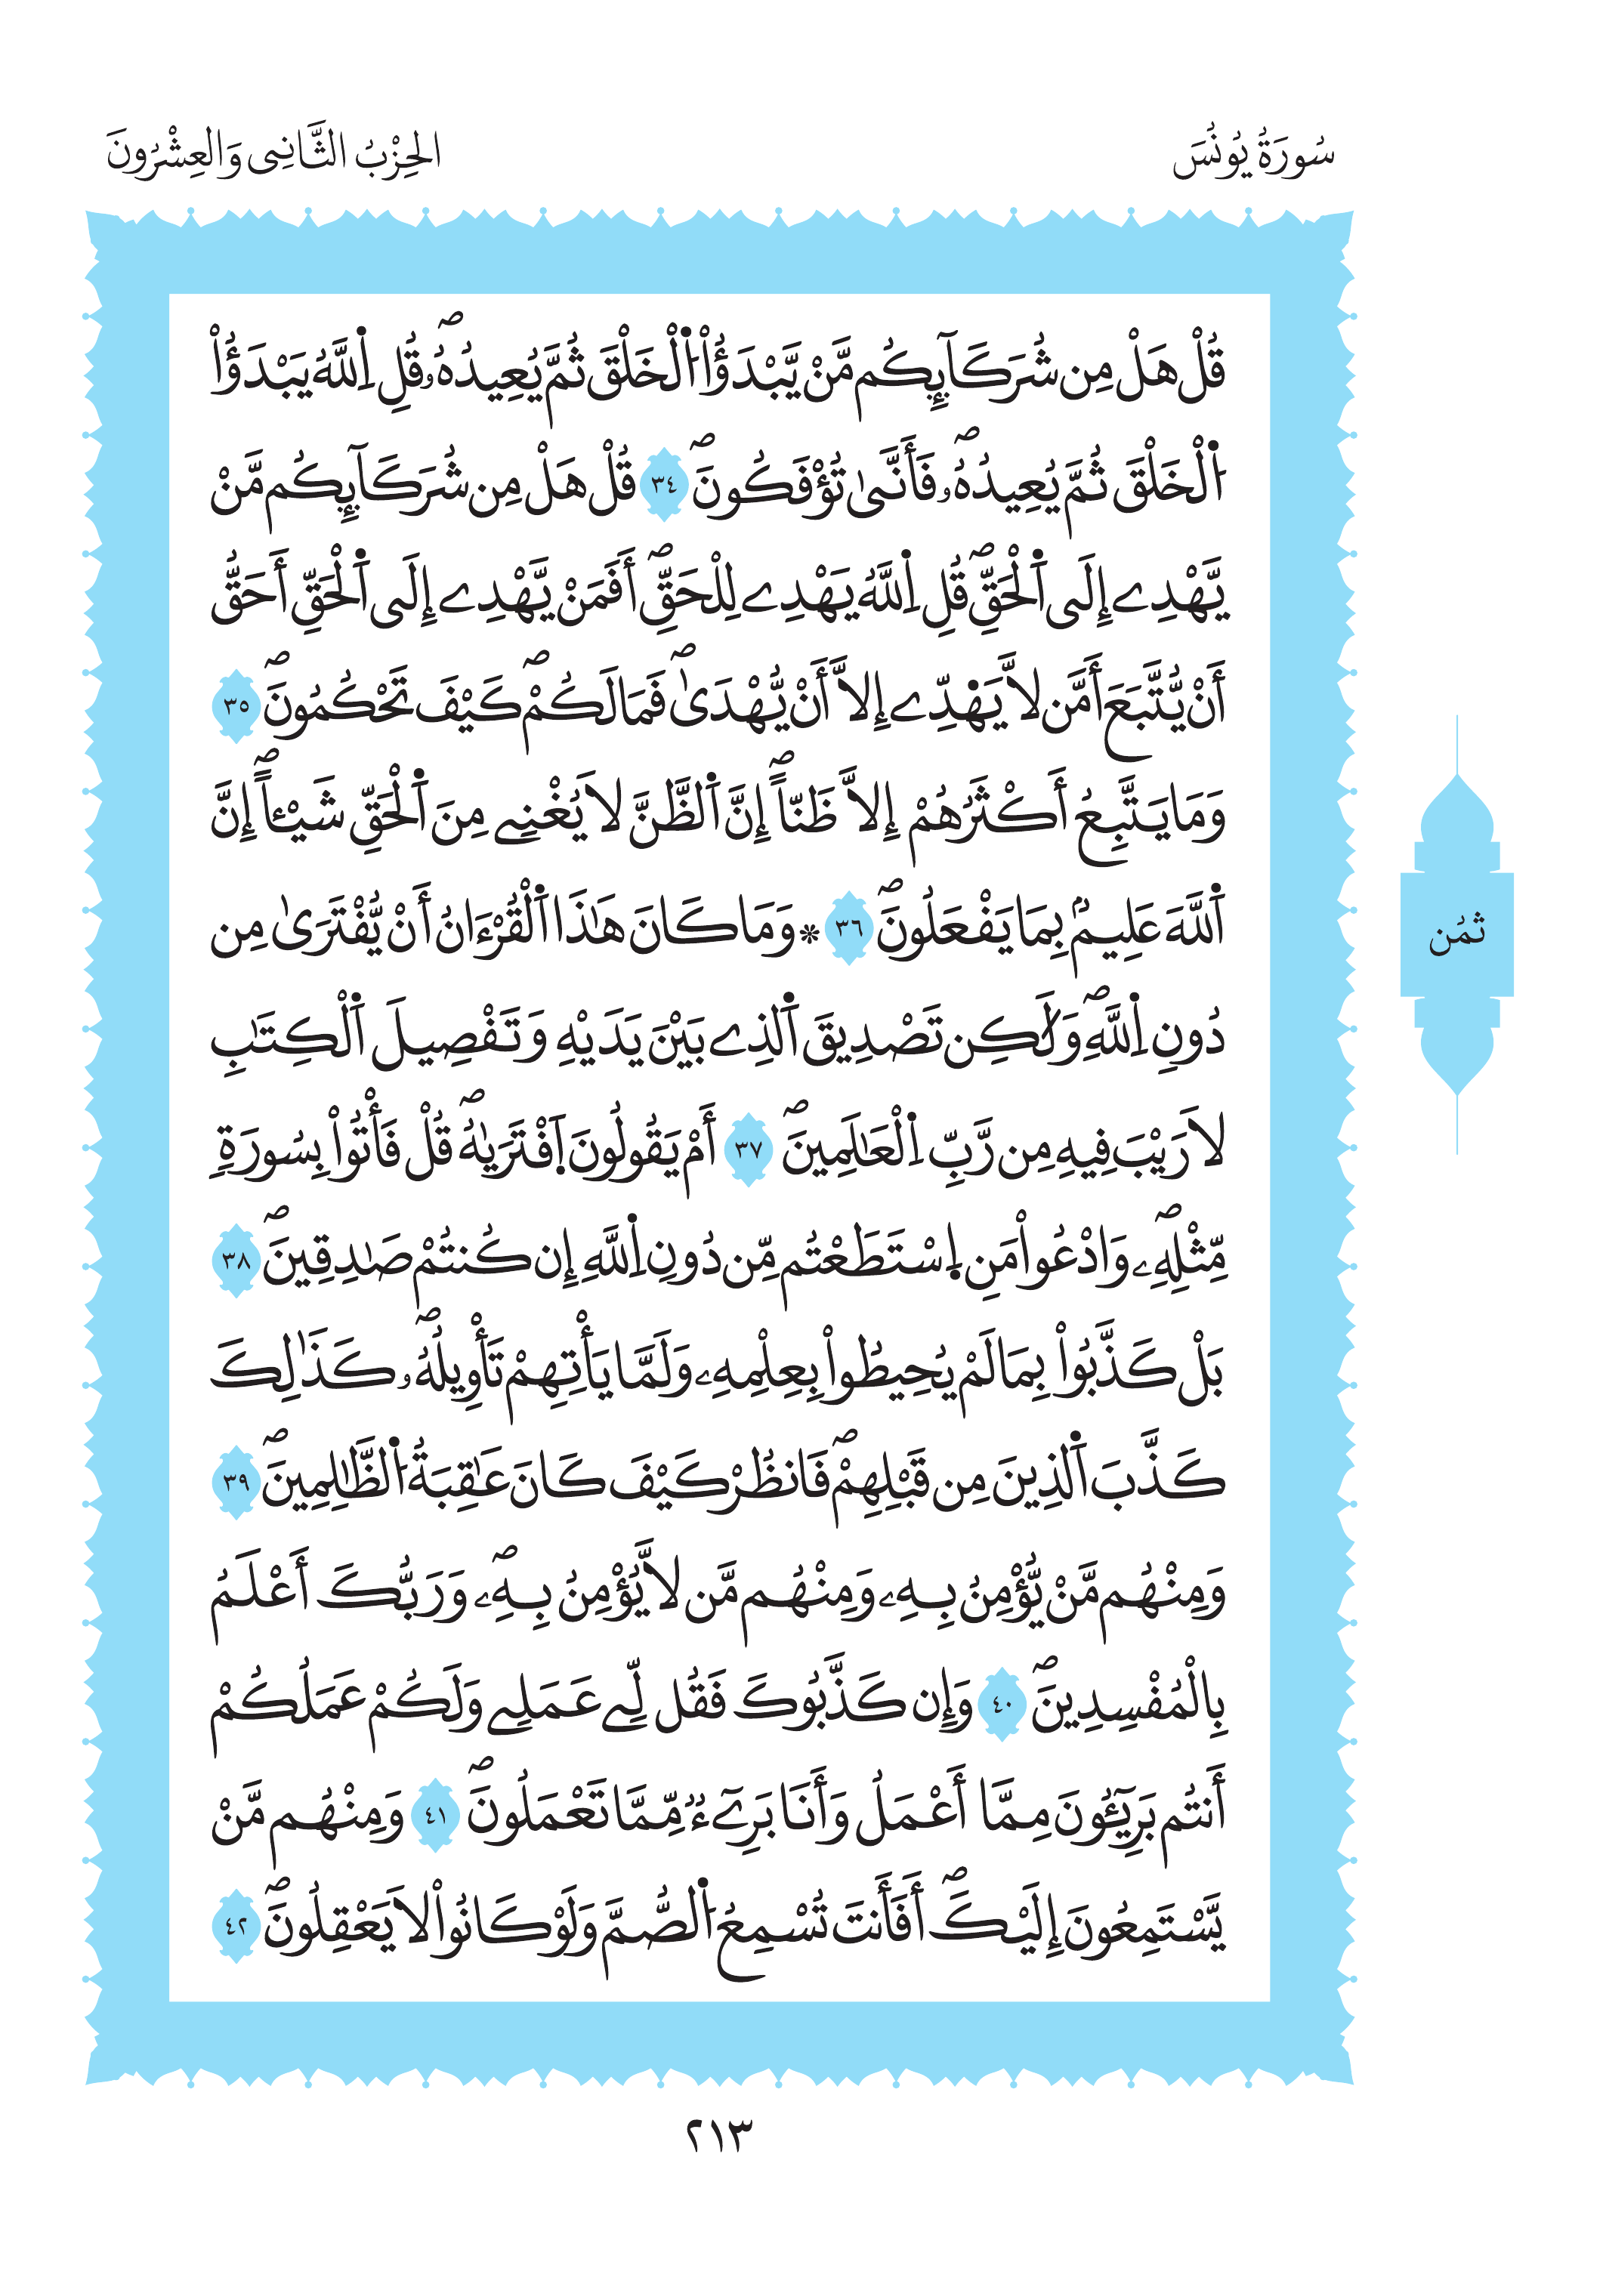 سُورَةُ يُونُسَ
الحِزْبُ الثَّانِي وَالعِشْرُونَ
قُلْ هَلْ مِن شُرَكَآئِكُم مَّنْ يَّبْدَؤُاْ اُ۬لْخَلْقَ ثُمَّ يُعِيدُهُۥۖ قُلِ اِ۬للَّهُ يَبْدَؤُاْ
اُ۬لْخَلْقَ ثُمَّ يُعِيدُهُۥۖ فَأَنَّىٰ تُؤْفَكُونَۖ ٣٤ قُلْ هَلْ مِن شُرَكَآئِكُم مَّنْ
يَّهْدِے إِلَى اَ۬لْحَقِّۖ قُلِ اِ۬للَّهُ يَهْدِے لِلْحَقِّۖ أَفَمَنْ يَّهْدِے إِلَى اَ۬لْحَقِّ أَحَقُّ
أَنْ يُّتَّبَعَ أَمَّن لاَّ يَهْدِّے إِلاَّ أَنْ يُّهْدَىٰۖ فَمَا لَكُمْۖ كَيْفَ تَحْكُمُونَۖ ٣٥
وَمَا يَتَّبِعُ أَكْثَرُهُمْ إِلاَّ ظَنّاًۖ إِنَّ اَ۬لظَّنَّ لاَ يُغْنِے مِنَ اَ۬لْحَقِّ شَيْـٔاًۖ إِنَّ
اَ۬للَّهَ عَلِيمُۢ بِمَا يَفْعَلُونَۖ ٣٦ * وَمَا كَانَ هَٰذَا اَ۬لْقُرْءَانُ أَنْ يُّفْتَرَىٰ مِن
دُونِ اِ۬للَّهِۖ وَلَٰكِن تَصْدِيقَ اَ۬لذِے بَيْنَ يَدَيْهِ وَتَفْصِيلَ اَ۬لْكِتَٰبِ
لاَ رَيْبَ فِيهِ مِن رَّبِّ اِ۬لْعَٰلَمِينَۖ ٣٧ أَمْ يَقُولُونَ اَ۪فْتَرَيٰهُۖ قُلْ فَأْتُواْ بِسُورَةٖ
مِّثْلِهِۦۖ وَادْعُواْ مَنِ اِ۪سْتَطَعْتُم مِّن دُونِ اِ۬للَّهِ إِن كُنتُمْ صَٰدِقِينَۖ ٣٨
بَلْ كَذَّبُواْ بِمَا لَمْ يُحِيطُواْ بِعِلْمِهِۦ وَلَمَّا يَأْتِهِمْ تَأْوِيلُهُۥۖ كَذَٰلِكَ
كَذَّبَ اَ۬لذِينَ مِن قَبْلِهِمْۖ فَانظُرْ كَيْفَ كَانَ عَٰقِبَةُ اُ۬لظَّٰلِمِينَۖ ٣٩
وَمِنْهُم مَّنْ يُّؤْمِنُ بِهِۦ وَمِنْهُم مَّن لاَّ يُؤْمِنُ بِهِۦۖ وَرَبُّكَ أَعْلَمُ
بِالْمُفْسِدِينَۖ ٤٠ وَإِن كَذَّبُوكَ فَقُل لِّے عَمَلِے وَلَكُمْ عَمَلُكُمْ
أَنتُم بَرِيٓـُٔونَ مِمَّا أَعْمَلُ وَأَنَا بَرِےٓءٞ مِّمَّا تَعْمَلُونَۖ ٤١ وَمِنْهُم مَّنْ
يَّسْتَمِعُونَ إِلَيْكَۖ أَفَأَنتَ تُسْمِعُ اُ۬لصُّمَّ وَلَوْ كَانُواْ لاَ يَعْقِلُونَۖ ٤٢
ثمُن
٢١٣